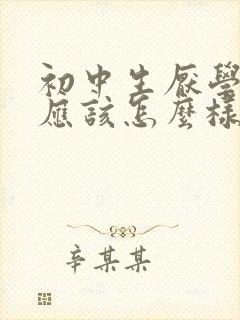 初中生厌學
应該怎麼樣
辛某某